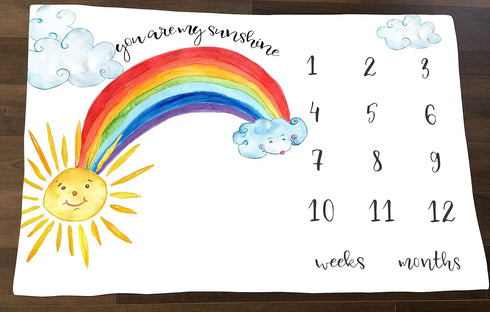 you are my sunshine
1 2 3
4 5 6
7 8 9
10 11 12
weeks months